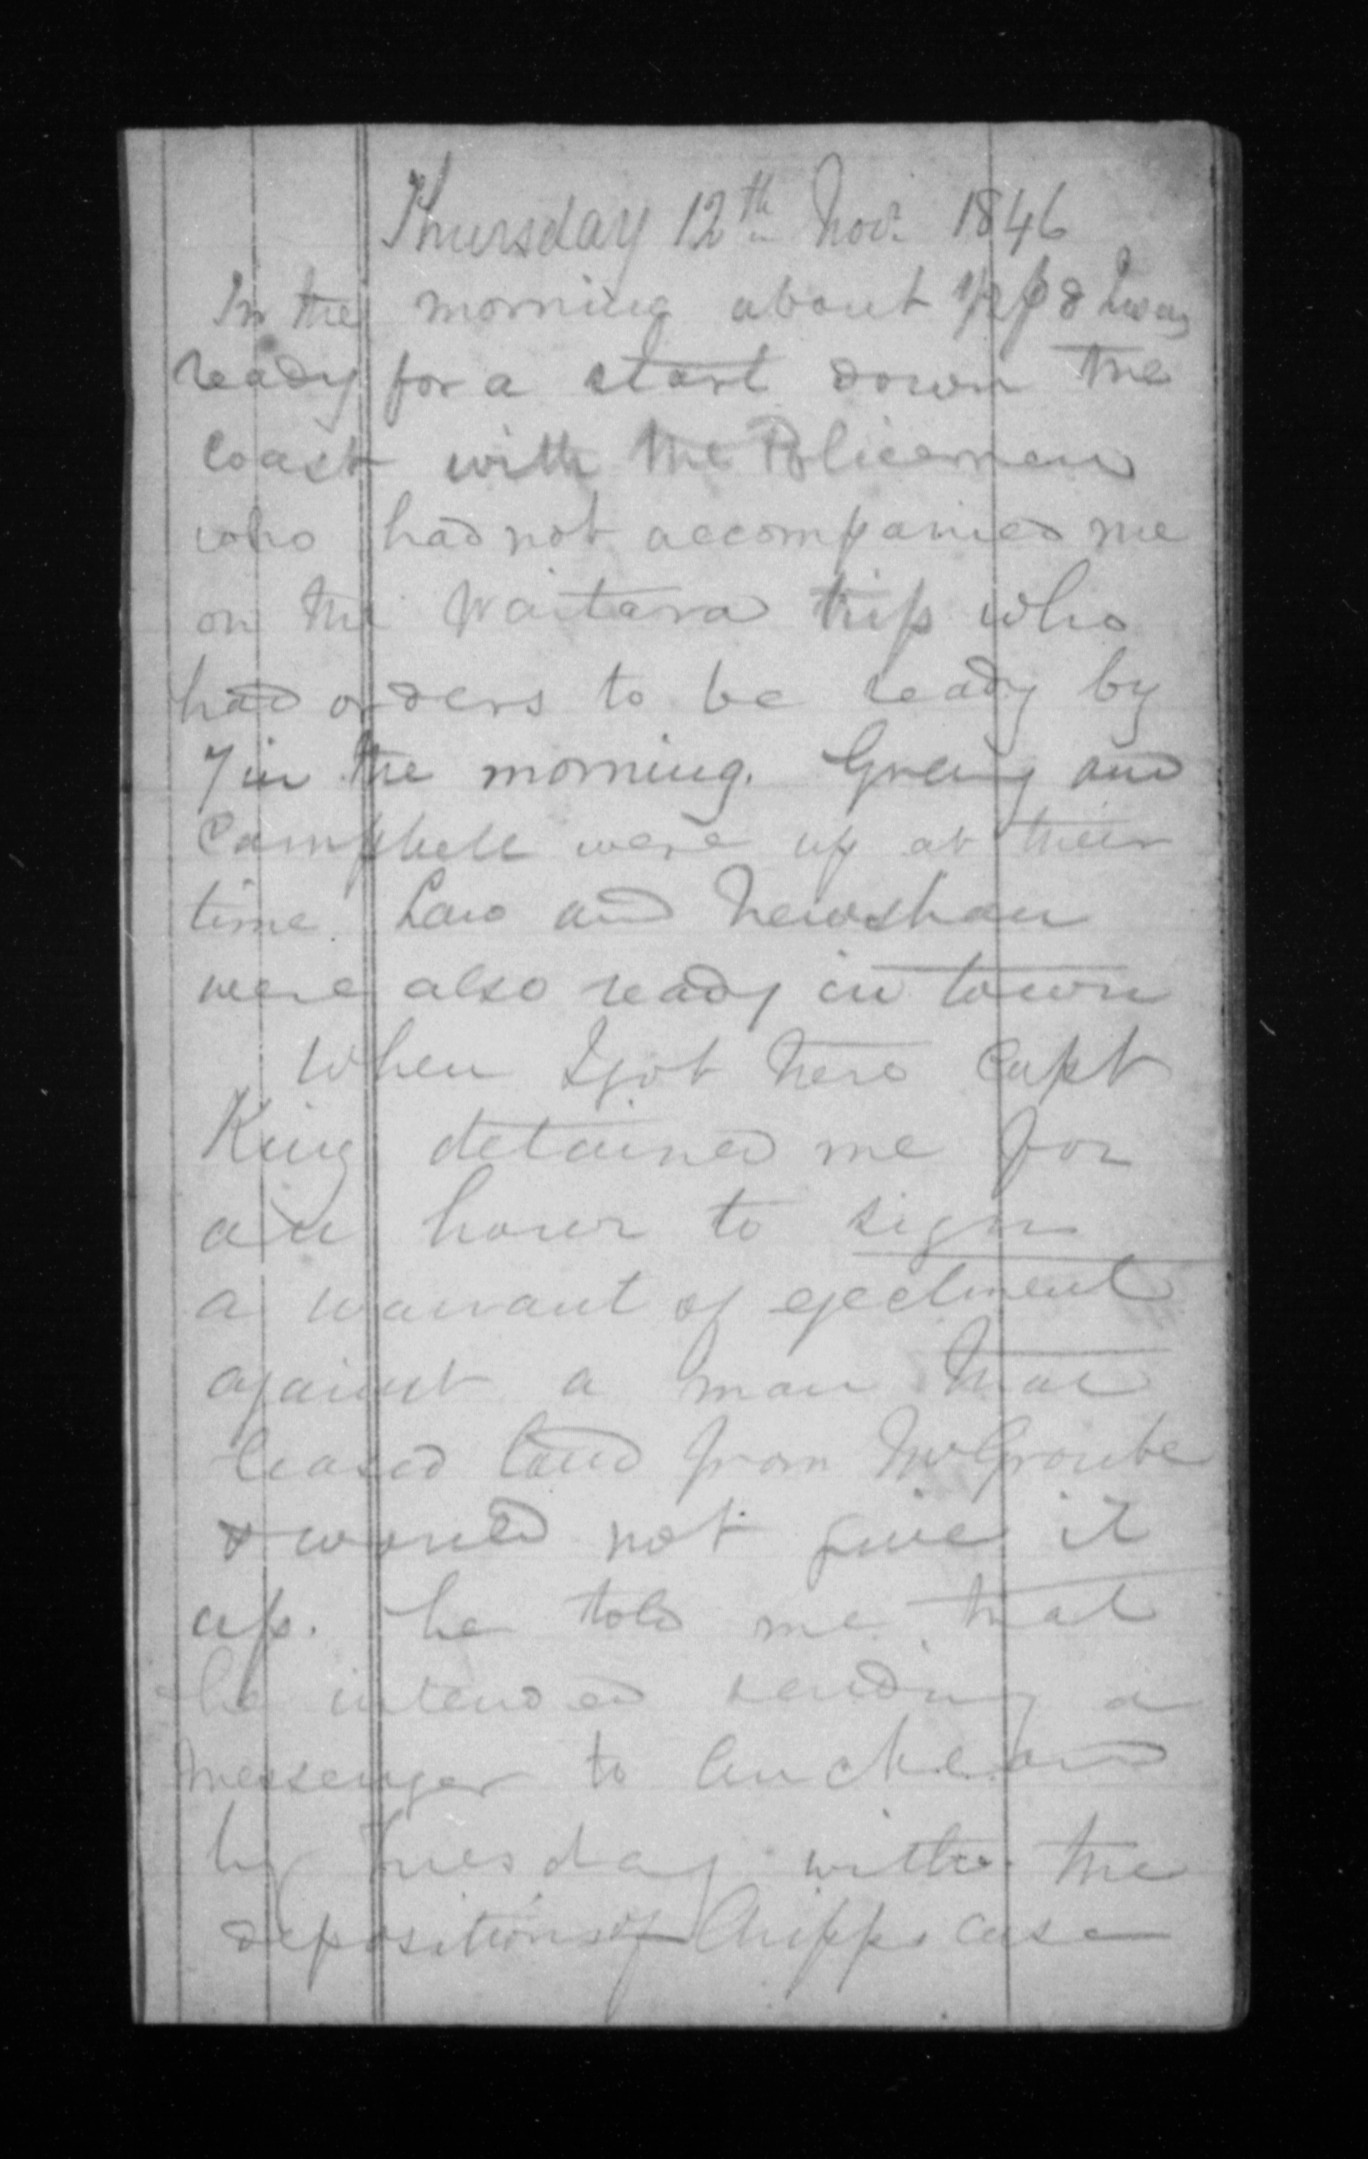 Thursday 12th Nov. 1846
In the morning about 1/2 p 8 I was
ready for a start down the
coast with the Policemen
who had not accompanied me
on the Waitara trip who
had orders to be ready by
7 in the morning. Greing and
Campbell were up at their
time. Law and Newsham
were also ready in town
When I got here Capt
King detained me for
an hour to sign
a warrant of ejectment
against a man that
leased land from Mr Groube
& would not give it
up. he told me that
he intended sending a
messenger to Auckland
by Tuesday with the
depositions of Chipps case